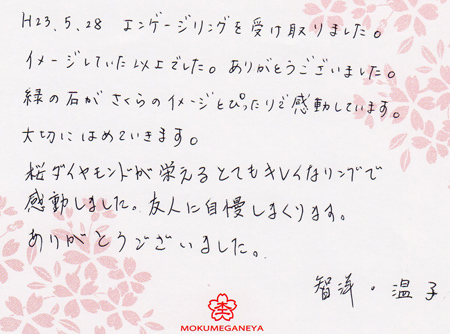 H23.5.28 エンゲージリングを受け取りました。
イメージしていた以上でした。ありがとうございました。
緑の石がさくらのイメージとぴったりで感動しています。
大切にはめていきます。
桜ダイヤモンドが栄えるとてもキレイなリングで
感動しました。友人に自慢しまくります。
ありがとうございました。
智洋・温子
MOKUMEGANEYA